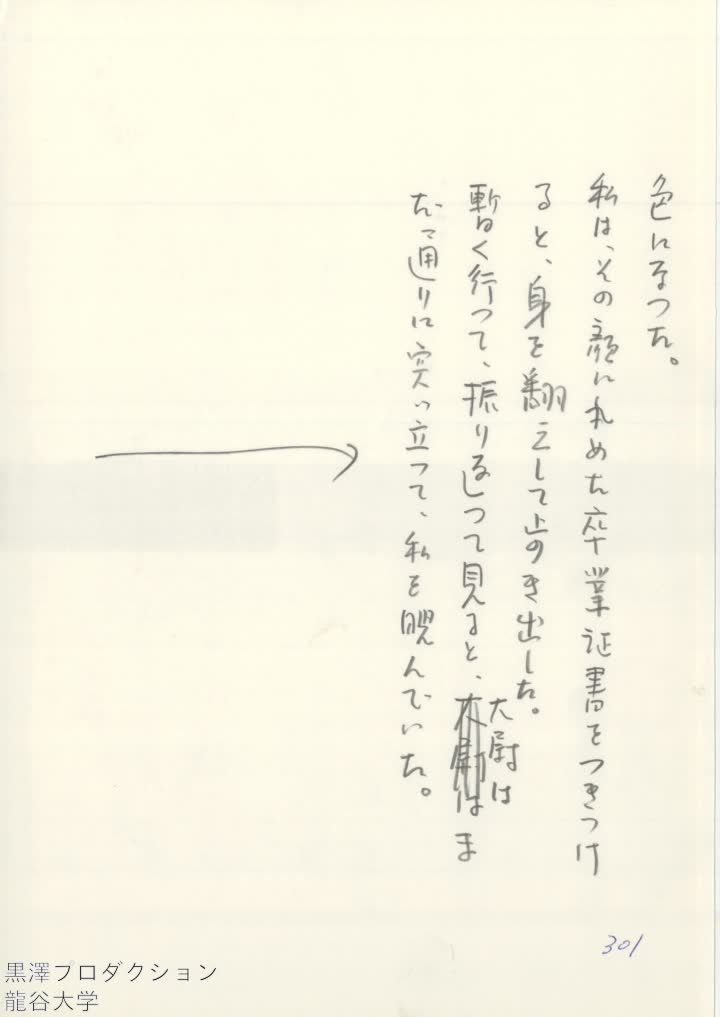 色になつた。
私は、その顔に丸めた卒業証書をつきつけ
ると、身を翻えして歩き出した。
暫く行つて、振り返つて見ると、大尉はま
だ通りに突っ立つて、私を睨んでいた。
301
黒澤プロダクション
龍谷大学